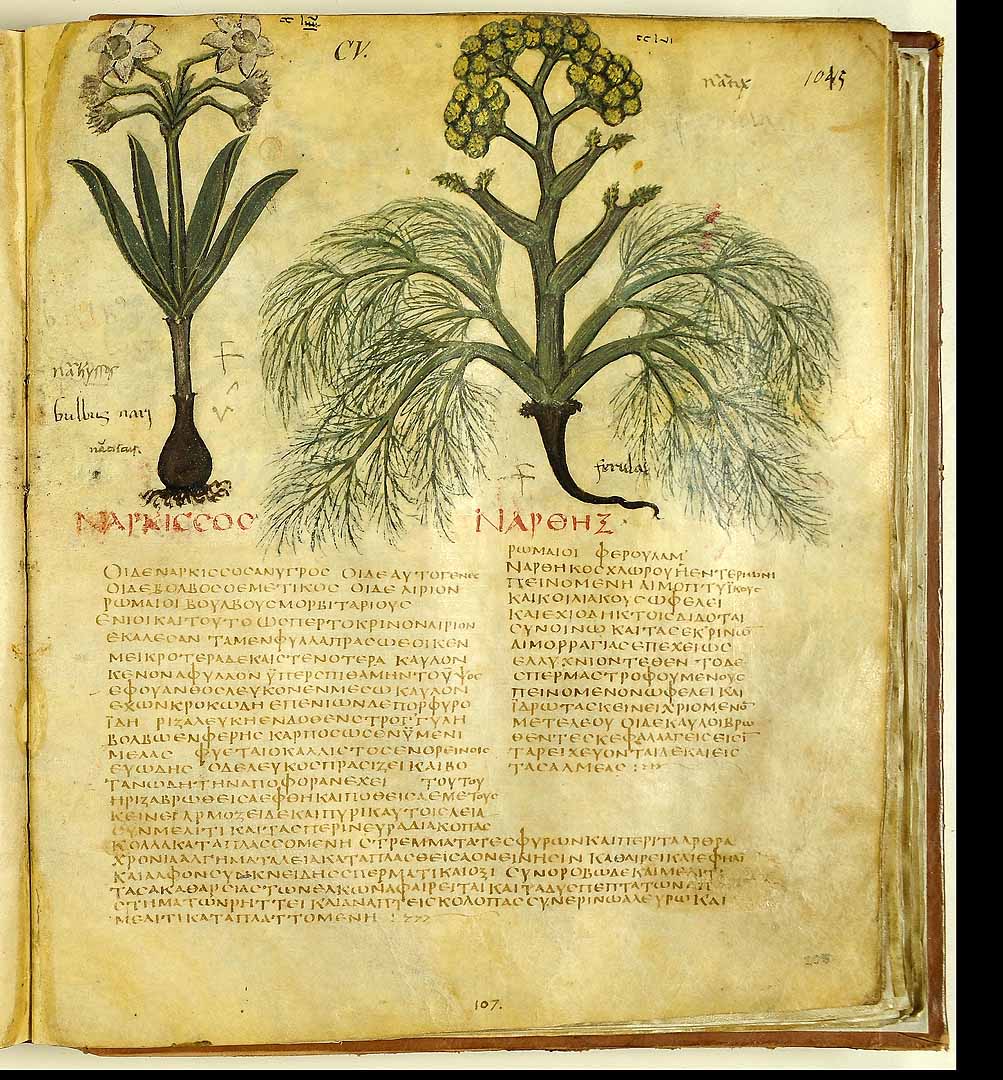 CV.
1045
bulbus
ferula
ΝΑΡΚΙCCΟC
ΟΙΔΕΝΑΡΚΙCCΟCΑΝΥΓΡΟC ΟΙΔΕΑΥΤΟΓΕΝΕC
ΟΙΔΕΒΟΛΒΟCΟΕΜΕΤΙΚΟC ΟΙΔΕ ΛΙΡΙΟΝ
ΡΩΜΑΙΟΙ ΒΟΥΛΒΟΥCΜΟΡΒΙΤΑΡΙΟΥC
ΕΝΙΟΙΚΑΙΤΟΥΤΟ ΩCΠΕΡΤΟΚΡΙΝΟΝΛΙΡΙΟΝ
ΕΚΑΛΕCΑΝ ΤΑΜΕΝΦΥΛΛΑΠΡΑCΩΕΟΙΚΕΝ
ΜΕΙΚΡΟΤΕΡΑΔΕΚΑΙCΤΕΝΟΤΕΡΑ ΚΑΥΛΟΝ
ΚΕΝΟΝΑΦΥΛΛΟΝ ΫΠΕΡCΠΙΘΑΜΗΝΤΟΫΨΟC
ΕΦΟΥΑΝΘΟCΛΕΥΚΟΝΕΝΜΕCΩ ΚΑΥΛΟΝ
ΕΧΩΝΚΡΟΚΩΔΗ ΕΠΕΝΙΩΝΔΕΠΟΡΦΥΡΟ
ΪΔΗ ΡΙΖΑΛΕΥΚΗΕΝΔΟΘΕΝCΤΡΟΓΓΥΛΗ
ΒΟΛΒΩΕΝΦΕΡΗC ΚΑΡΠΟCΩCΕΝΫΜΕΝΙ
ΜΕΛΑC ΦΥΕΤΑΙΟΚΑΛΛΙCΤΟCΕΝΟΡΕΙΝΟΙC
ΕΥΩΔΗC ΟΔΕΛΕΥΚΟCΠΡΑCΙΖΕΙΚΑΙΒΟ
ΤΑΝΩΔΗΤΗΝΑΠΟΦΟΡΑΝΕΧΕΙ ΤΟΥΤΟΥ
ΗΡΙΖΑΒΡΩΘΕΙCΑΕΦΘΗΚΑΙΠΟΘΕΙCΑΕΜΕΤΟΥC
ΚΕΙΝΕΙ ΑΡΜΟΖΕΙΔΕΚΑΙΠΥΡΙΚΑΥΤΟΙCΛΕΙΑ
CΥΝΜΕΛΙΤΙ ΚΑΙΤΑCΠΕΡΙΝΕΥΡΑΔΙΑΚΟΠΑC
ΚΟΛΛΑΚΑΤΑΠΛΑCCΟΜΕΝΗ CΤΡΕΜΜΑΤΑΤΕCΦΥΡΩΝΚΑΙΠΕΡΙΤΑΑΡΘΡΑ
ΧΡΟΝΙΑΑΛΓΗΜΑΤΑΛΕΙΑΚΑΤΑΠΛΑCΘΕΙCΑΟΝΕΙΝΗCΙΝ ΚΑΘΑΙΡΕΙΚΑΙΕΦΗΛΙ
ΚΑΙΑΛΦΟΝCΥΝΚΝΕΙΔΗCCΠΕΡΜΑΤΙΚΑΙΟΞΙ CΥΝΟΡΟΒΩΔΕΚΑΙΜΕΛΙΤΙ
ΤΑCΑΚΑΘΑΡCΙΑCΤΩΝΕΛΚΩΝΑΦΑΙΡΕΙΤΑΙ ΚΑΙΤΑΔΥCΠΕΠΤΑΤΩΝΑΠ
CΤΗΜΑΤΩΝΡΗΤΤΕΙ ΚΑΙΑΝΑΠΤΕΙCΚΟΛΟΠΑCCΥΝΕΡΙΝΩΑΛΕΥΡΩ ΚΑΙ
ΜΕΛΙΤΙΚΑΤΑΠΛΑΤΤΟΜΕΝΗ
ΝΑΡΘΗΞ
ΡΩΜΑΙΟΙ ΦΕΡΟΥΛΑΜ
ΝΑΡΘΗΚΟCΧΛΩΡΟΥΗΕΝΤΕΡΙΩΝΗ
ΠΕΙΝΟΜΕΝΗ ΑΙΜΟΠΤΥΪΚΟΥC
ΚΑΙΚΟΙΛΙΑΚΟΥCΩΦΕΛΕΙ
ΚΑΙΕΧΙΟΔΗΚΤΟΙCΔΙΔΟΤΑΙ
CΥΝΟΙΝΩ ΚΑΙΤΑCΕΚΡΙΝΩ
ΑΙΜΟΡΡΑΓΙΑCΕΠΕΧΕΙΩC
ΕΛΛΥΧΝΙΟΝΤΕΘΕΝ ΤΟΔΕ
CΠΕΡΜΑCΤΡΟΦΟΥΜΕΝΟΥC
ΠΕΙΝΟΜΕΝΟΝΩΦΕΛΕΙ ΚΑΙ
ΪΔΡΩΤΑCΚΕΙΝΕΙΧΡΙΟΜΕΝΟ
ΜΕΤΕΛΕΟΥ ΟΙΔΕΚΑΥΛΟΙΒΡΩ
ΘΕΝΤΕCΚΕΦΑΛΑΓΕΙCΕΙCΙ
ΤΑΡΕΙΧΕΥΟΝΤΑΙΔΕΚΑΙΕΙC
ΤΑCΑΛΜΕΑC
107.